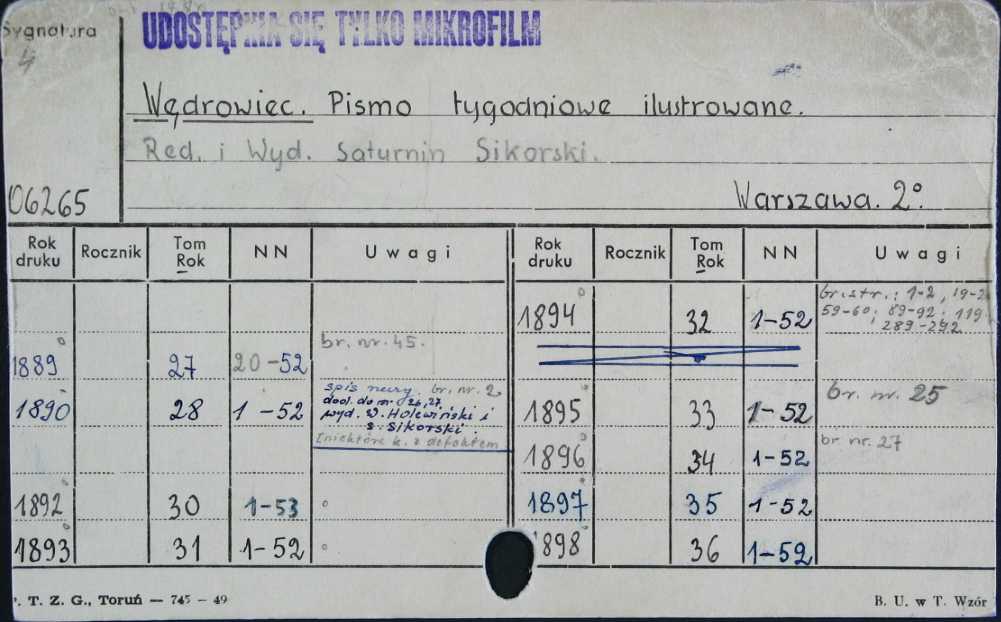 Sygnatura
4
UDOSTĘPNIA SIĘ TYLKO MIKROFILM
Wędrowiec. Pismo tygodniowe ilustrowane.
Red. i Wyd. Saturnin Sikorski.
06265
Warszawa. 2°.
Rok druku Rocznik Tom Rok NN Uwagi
1889 27 20-52 br. nr. 45.
1890 28 1-52 spis nr br. nr. 2
dod. do nr. 26,27
wyd. W. Holewiński i
S. Sikorski.
[niektóre k. z defektem
1892 30 1-53
1893 31 1-52
Rok druku Rocznik Tom Rok NN Uwagi
1894 32 1-52 br. str.: 1-2, 19-2
59-60; 89-92; 119
289-292
1895 33 1-52 br. nr. 25
1896 34 1-52 br nr. 27
1897 35 1-52
898 36 1-52
. T. Z. G., Toruń — 745 - 49
B. U. w T. Wzór